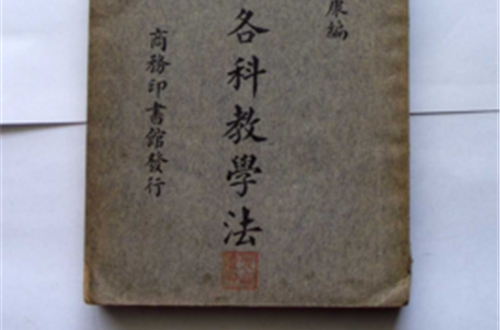 康編
各科教學法
商務印書館發行